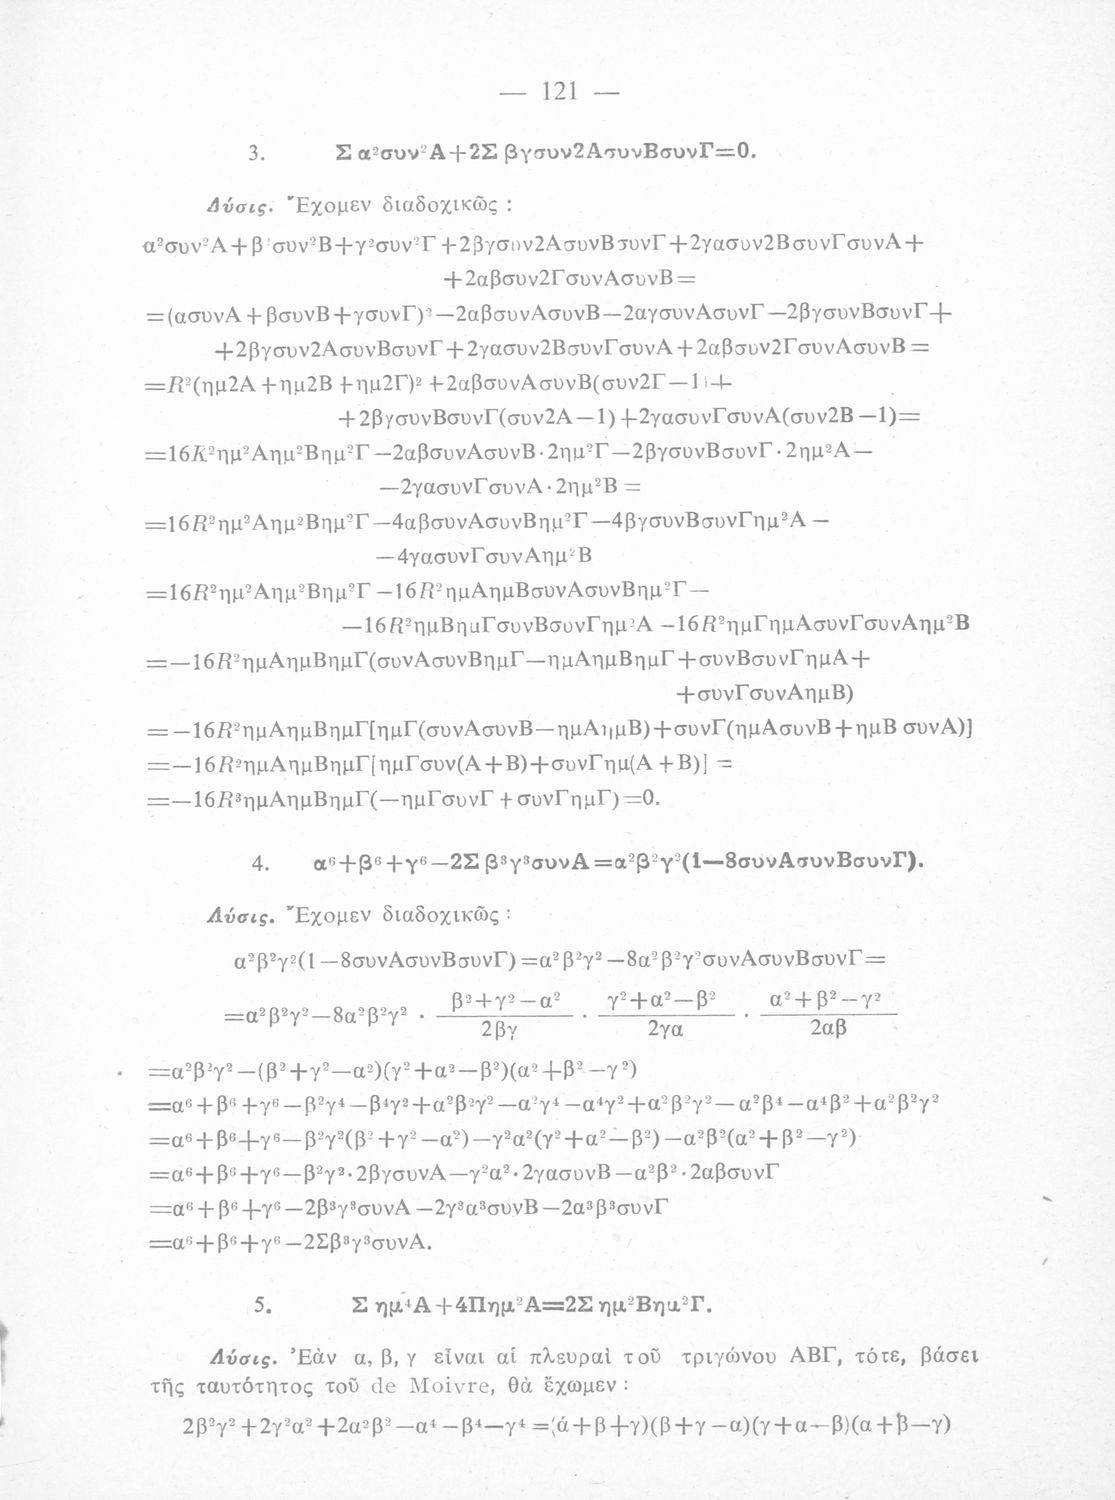 — 121 —
3. Σ α²συν²Α+2Σ βγσυν2ΑσυνΒσυνΓ=0.
Λύσις. Ἔχομεν διαδοχικῶς :
α²συν²Α+β²συν²Β+γ²συν²Γ+2βγσυν2ΑσυνΒσυνΓ+2γασυν2ΒσυνΓσυνΑ+
+2αβσυν2ΓσυνΑσυνΒ=
=(ασυνΑ+βσυνΒ+γσυνΓ)²—2αβσυνΑσυνΒ—2αγσυνΑσυνΓ—2βγσυνΒσυνΓ+
+2βγσυν2ΑσυνΒσυνΓ+2γασυν2ΒσυνΓσυνΑ+2αβσυν2ΓσυνΑσυνΒ=
=R²(ημ2Α+ημ2Β+ημ2Γ)²+2αβσυνΑσυνΒ(συν2Γ—1)+
+2βγσυνΒσυνΓ(συν2Α—1)+2γασυνΓσυνΑ(συν2Β—1)=
=16R²ημ²Αημ²Βημ²Γ—2αβσυνΑσυνΒ·2ημ²Γ—2βγσυνΒσυνΓ·2ημ²Α—
—2γασυνΓσυνΑ·2ημ²Β=
=16R²ημ²Αημ²Βημ²Γ—4αβσυνΑσυνΒημ²Γ—4βγσυνΒσυνΓημ²Α—
—4γασυνΓσυνΑημ²Β
=16R²ημ²Αημ²Βημ²Γ—16R²ημΑημΒσυνΑσυνΒημ²Γ—
—16R²ημΒημΓσυνΒσυνΓημ²Α—16R²ημΓημΑσυνΓσυνΑημ²Β
=—16R²ημΑημΒημΓ(συνΑσυνΒημΓ—ημΑημΒημΓ+συνΒσυνΓημΑ+
+συνΓσυνΑημΒ)
=—16R²ημΑημΒημΓ[ημΓ(συνΑσυνΒ—ημΑημΒ)+συνΓ(ημΑσυνΒ+ημΒσυνΑ)]
=—16R²ημΑημΒημΓ[ημΓσυν(Α+Β)+συνΓημ(Α+Β)]=
=—16R³ημΑημΒημΓ(—ημΓσυνΓ+συνΓημΓ)=0.
4. α⁶+β⁶+γ⁶—2Σ β³γ³συνΑ=α²β²γ²(1—8συνΑσυνΒσυνΓ).
Λύσις. Ἔχομεν διαδοχικῶς :
α²β²γ²(1—8συνΑσυνΒσυνΓ)=α²β²γ²—8α²β²γ²συνΑσυνΒσυνΓ=
=α²β²γ²—8α²β²γ² · (β²+γ²—α²)/2βγ · (γ²+α²—β²)/2γα · (α²+β²—γ²)/2αβ
=α²β²γ²—(β²+γ²—α²)(γ²+α²—β²)(α²+β²—γ²)
=α⁶+β⁶+γ⁶—β²γ⁴—β⁴γ²+α²β²γ²—α²γ⁴—α⁴γ²+α²β²γ²—α²β⁴—α⁴β²+α²β²γ²
=α⁶+β⁶+γ⁶—β²γ²(β²+γ²—α²)—γ²α²(γ²+α²—β²)—α²β²(α²+β²—γ²)
=α⁶+β⁶+γ⁶—β²γ²·2βγσυνΑ—γ²α²·2γασυνΒ—α²β²·2αβσυνΓ
=α⁶+β⁶+γ⁶—2β³γ³συνΑ—2γ³α³συνΒ—2α³β³συνΓ
=α⁶+β⁶+γ⁶—2Σβ³γ³συνΑ.
5. Σ ημ⁴Α+4Πημ²Α=2Σ ημ²Βημ²Γ.
Λύσις. Ἐὰν α, β, γ εἶναι αἱ πλευραὶ τοῦ τριγώνου ΑΒΓ, τότε, βάσει
τῆς ταυτότητος τοῦ de Moivre, θὰ ἔχωμεν :
2β²γ²+2γ²α²+2α²β²—α⁴—β⁴—γ⁴=(α+β+γ)(β+γ—α)(γ+α—β)(α+β—γ)